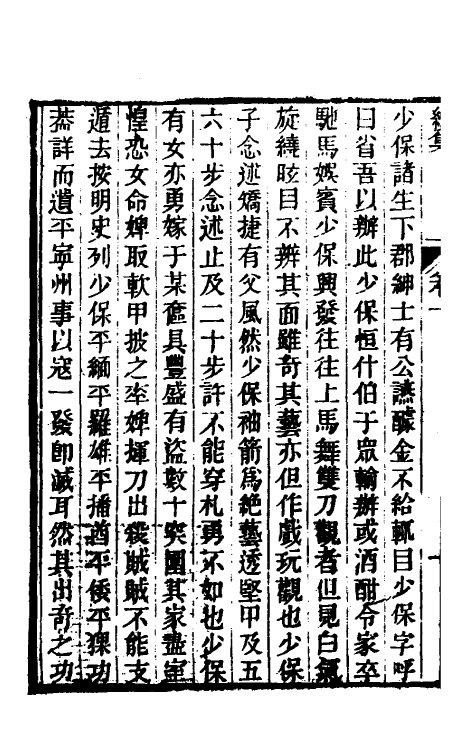 少保諸生下郡紳士有公讌醵金不給輒目少保字呼
曰省吾以辦此少保恒什伯于眾輸辦或酒酣令家卒
馳馬娛賓少保興發往往上馬舞雙刀觀者但見白氣
旋繞眩目不辨其面雖奇其藝亦但作戲玩觀也少保
子念述矯捷有父風然少保袖箭爲絶藝透堅甲及五
六十步念述止及二十步許不能穿札勇不如也少保
有女亦勇嫁于某奩具豐盛有盜數十突圍其家盡室
惶恐女命婢取軟甲披之率婢揮刀出殺賊賊不能支
遁去按明史列少保平緬平羅雄平播酋平倭平猓功
葢詳而遺平寧州事以寇一發卽滅耳然其出奇之功
卷一